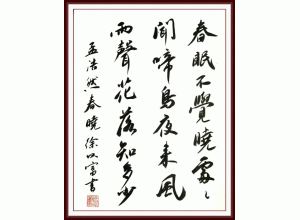 春眠不覺曉處〻
聞啼鳥夜来風
雨聲花落知多少
孟浩然春曉徐富書